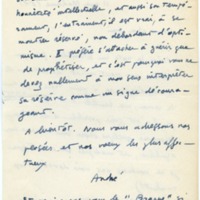 honnêteté intellectuelle, et aussi son tempé-
rament, l'entraînent, il est vrai, à se
montrer réservé, non débordant d'opti-
misme. Il préfère s'attacher à guérir que
de prophétiser, et c'est pourquoi vous ne
devez nullement à mon sens interpréter
sa réserve comme un signe décou-
rageant.
A bientôt. Nous vous adressons nos
pensées et nos vœux les plus affec-
tueux
André
pour le "